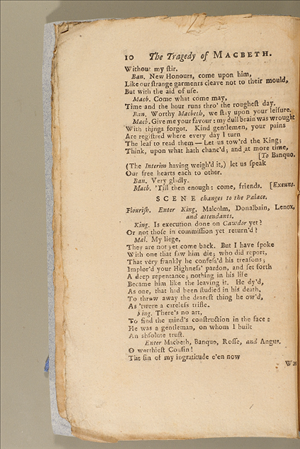 10 The Tragedy of MACBETH.
Without my ſtir.
Ban. New Honours, come upon him,
Like our ſtrange garments cleave not to their mould,
But with the aid of uſe.
Macb. Come what come may,
Time and the hour runs thro' the rougheſt day.
Ban. Worthy Macbeth, we ſtay upon your leiſure.
Macb. Give me your favour: my dull brain was wrought
With things forgot. Kind gentlemen, your pains
Are regiſtred where every day I turn
The leaf to read them — Let us tow'rd the King;
Think, upon what hath chanc'd; and at more time,
[To Banquo.
(The Interim having weigh'd it,) let us ſpeak
Our free hearts each to other.
Ban. Very gladly.
Macb. 'Till then enough: come, friends. [Exeunt.
SCENE changes to the Palace.
Flouriſh. Enter King, Malcolm, Donalbain, Lenox,
and attendants.
King. Is execution done on Cawdor yet?
Or not thoſe in commiſſion yet return'd?
Mal. My liege,
They are not yet come back. But I have ſpoke
With one that ſaw him die; who did report,
That very frankly he confeſs'd his treaſons;
Implor'd your Highneſs' pardon, and ſet forth
A deep repentance; nothing in his life
Became him like the leaving it. He dy'd,
As one, that had been ſtudied in his death,
To throw away the deareſt thing he ow'd,
As 'twere a careleſs trifle.
King. There's no art,
To find the mind's conſtruction in the face:
He was a gentleman, on whom I built
An abſolute truſt.
Enter Macbeth, Banquo, Roſſe, and Angus.
O worthieſt Couſin!
The ſin of my ingratitude e'en now